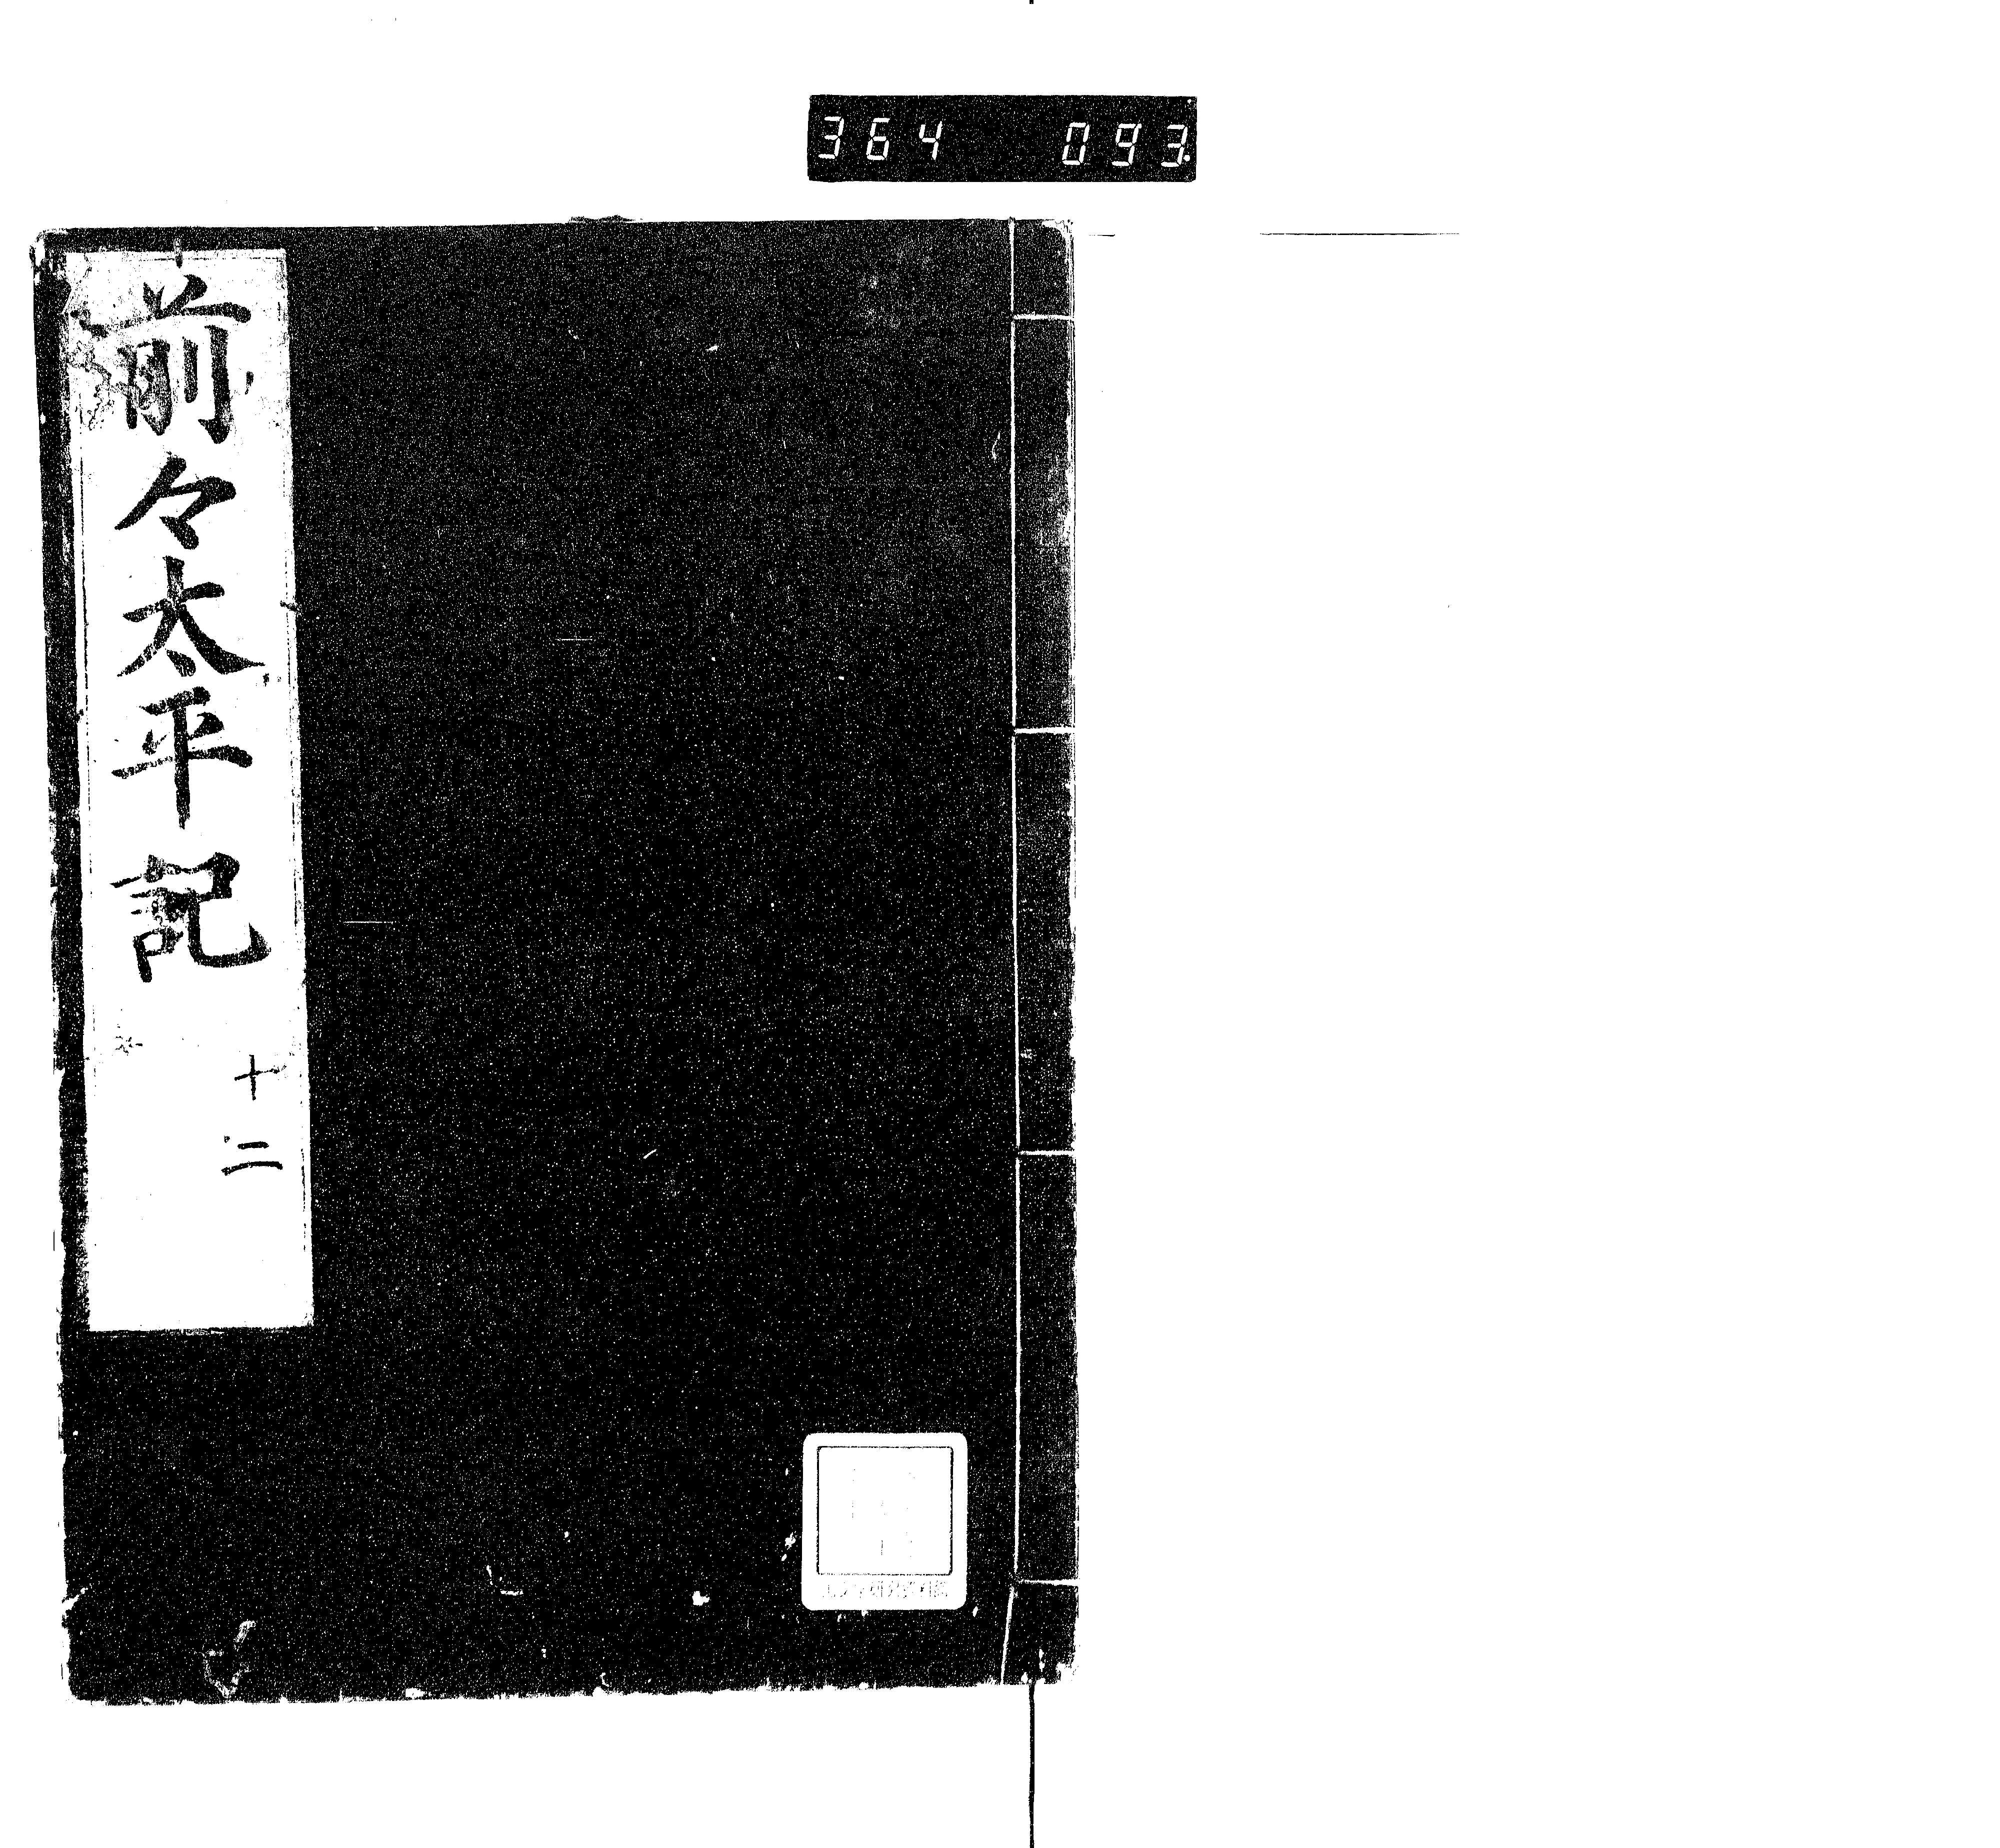 364 093
前々太平記
十二